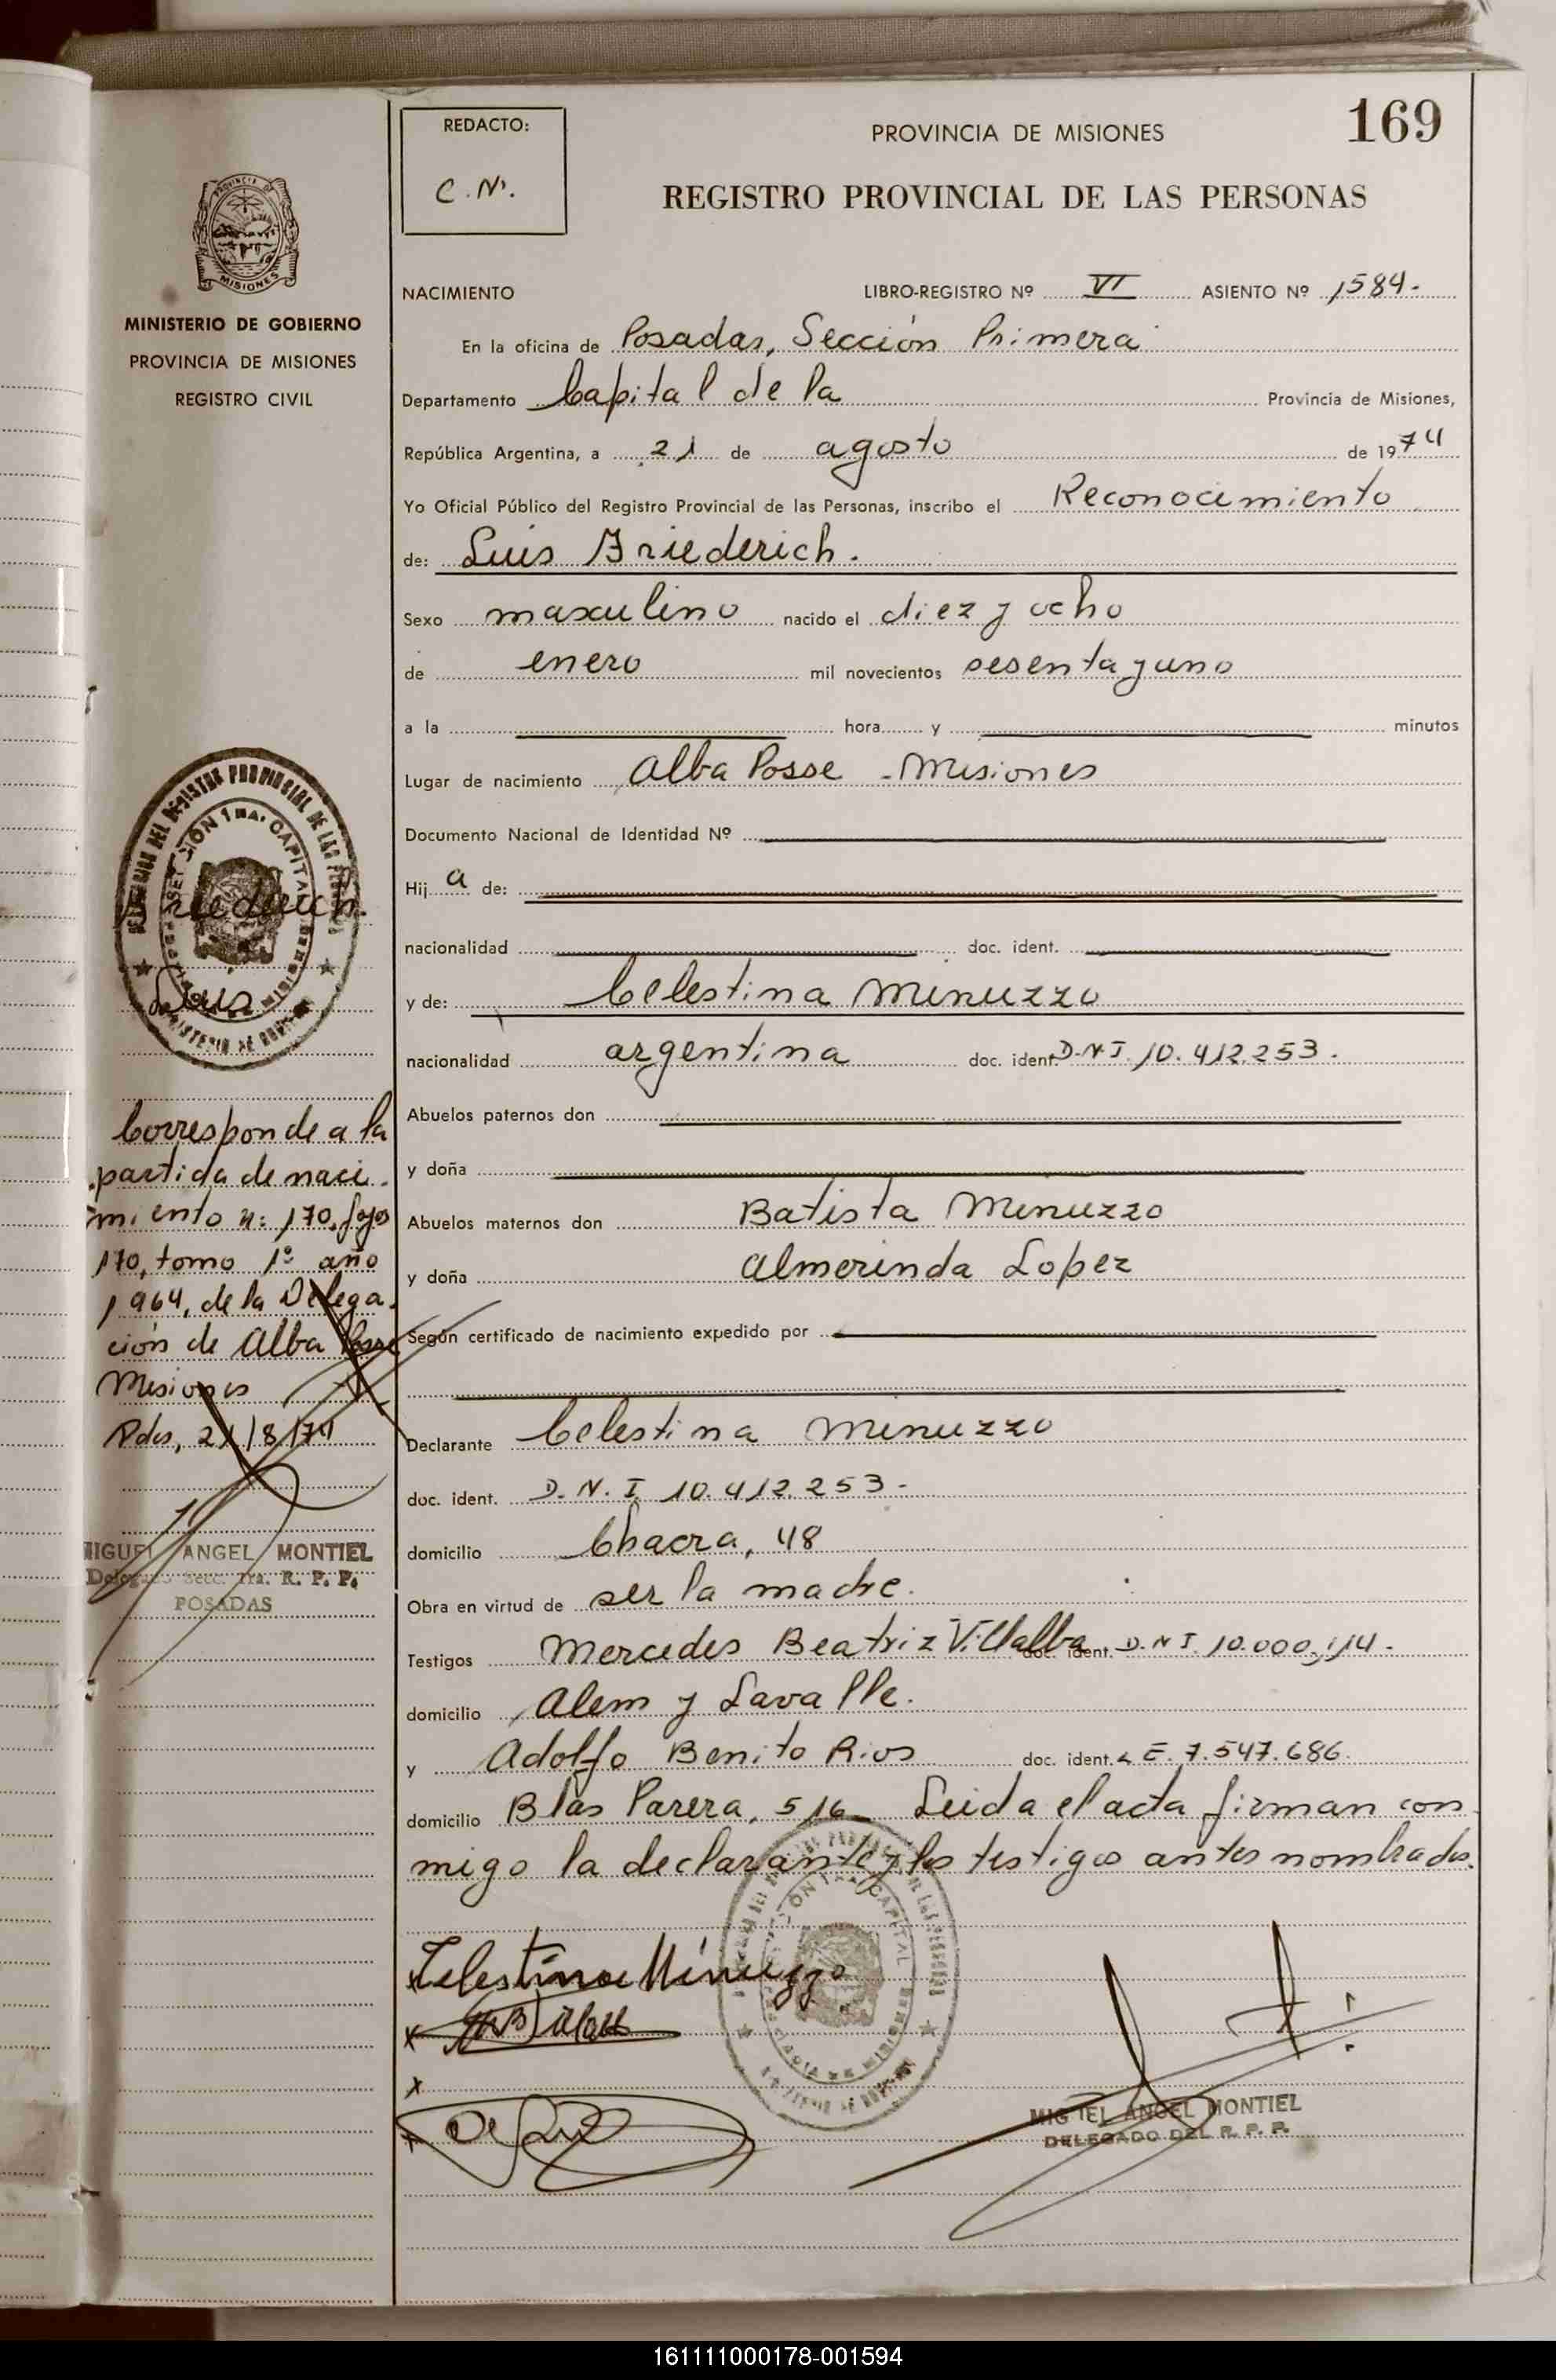 169
REDACTO:
C.N.
PROVINCIA DE MISIONES
REGISTRO PROVINCIAL DE LAS PERSONAS
MISIONES
MINISTERIO DE GOBIERNO
PROVINCIA DE MISIONES
REGISTRO CIVIL
NACIMIENTO LIBRO-REGISTRO Nº VI ASIENTO Nº 1584.
En la oficina de Posadas, Sección Primera
Departamento Capital de la Provincia de Misiones,
República Argentina, a 21 de agosto de 1974
Yo Oficial Público del Registro Provincial de las Personas, inscribo el Reconocimiento
de: Luis Friederich.
Sexo masculino nacido el diez y ocho
de enero mil novecientos sesenta y uno
a la hora y minutos
Lugar de nacimiento Alba Posse - Misiones
Documento Nacional de Identidad Nº
Hij a de:
nacionalidad doc. ident.
y de: Celestina Minuzzo
nacionalidad argentina doc. ident. D.N.I. 10.412.253.
Abuelos paternos don
y doña
Abuelos maternos don Batista Minuzzo
y doña Almerinda Lopez
Según certificado de nacimiento expedido por
Declarante Celestina Minuzzo
doc. ident. D.N.I. 10.412.253.
domicilio Chacra, 48
Obra en virtud de ser la madre.
Testigos Mercedes Beatriz Villalba doc. ident. D.N.I. 10.000.114.
domicilio Alem y Lavalle.
y Adolfo Benito Rios doc. ident. L.E. 7.547.686.
domicilio Blas Parera, 516 Leida el acta firman con
migo la declarante y los testigos antes nombrados.
Celestina Minuzzo
MIGUEL ANGEL MONTIEL
DELEGADO DEL R. P. P.
SECCIÓN 1RA. CAPITAL
Friederich.
Luis
Corresponde a la
partida de naci-
miento n: 170, fojo
170, tomo 1º año
1964, de la Delega-
ción de Alba Posse
Misiones
Pdas, 21/8/74
MIGUEL ANGEL MONTIEL
Delegado Secc. 1ra. R. P. P.
POSADAS
161111000178-001594